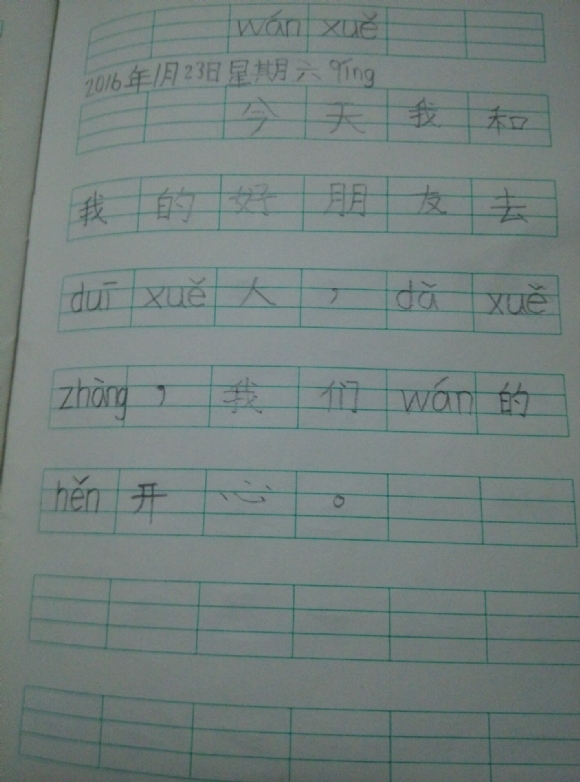 wán xuě
2016年1月23日星期六 qíng
今天我和
我的好朋友去
duī xuě 人，dǎ xuě
zhàng，我们 wán 的
hěn 开心。